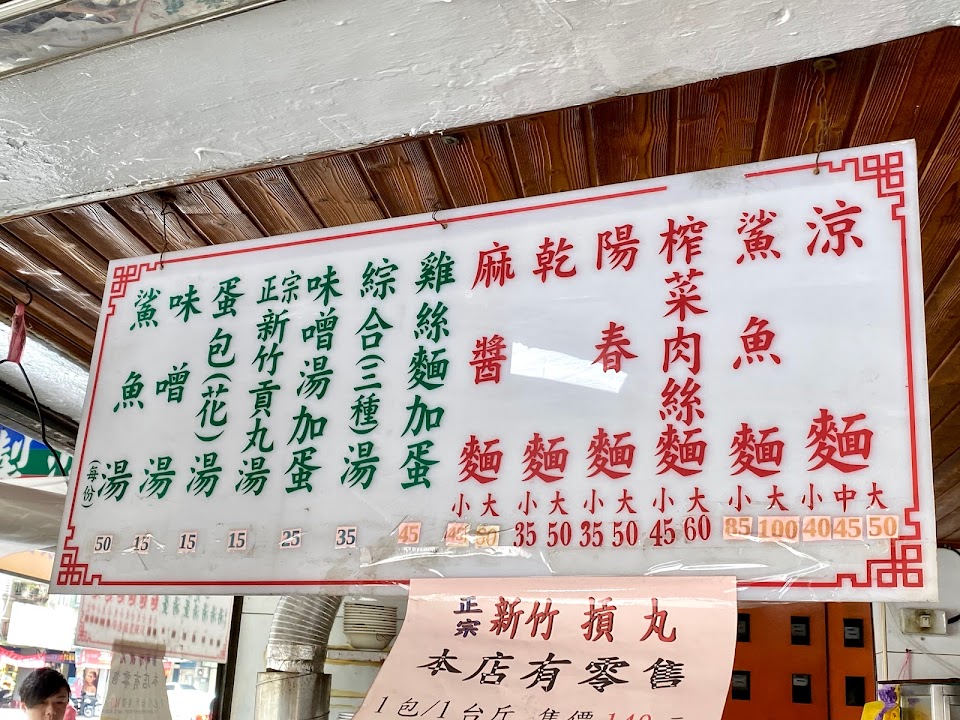 涼麵 小40 中45 大50
鯊魚麵 小85 大100
榨菜肉絲麵 小45 大60
陽春麵 小35 大50
乾麵 小35 大50
麻醬麵 小 大
雞絲麵加蛋 45
綜合(三種)湯 35
味噌湯加蛋 25
正宗新竹貢丸湯 15
蛋包(花)湯 15
味噌湯 15
鯊魚湯(每份) 50
正宗 新竹 摃丸
本店有零售
1包/1台斤 售價